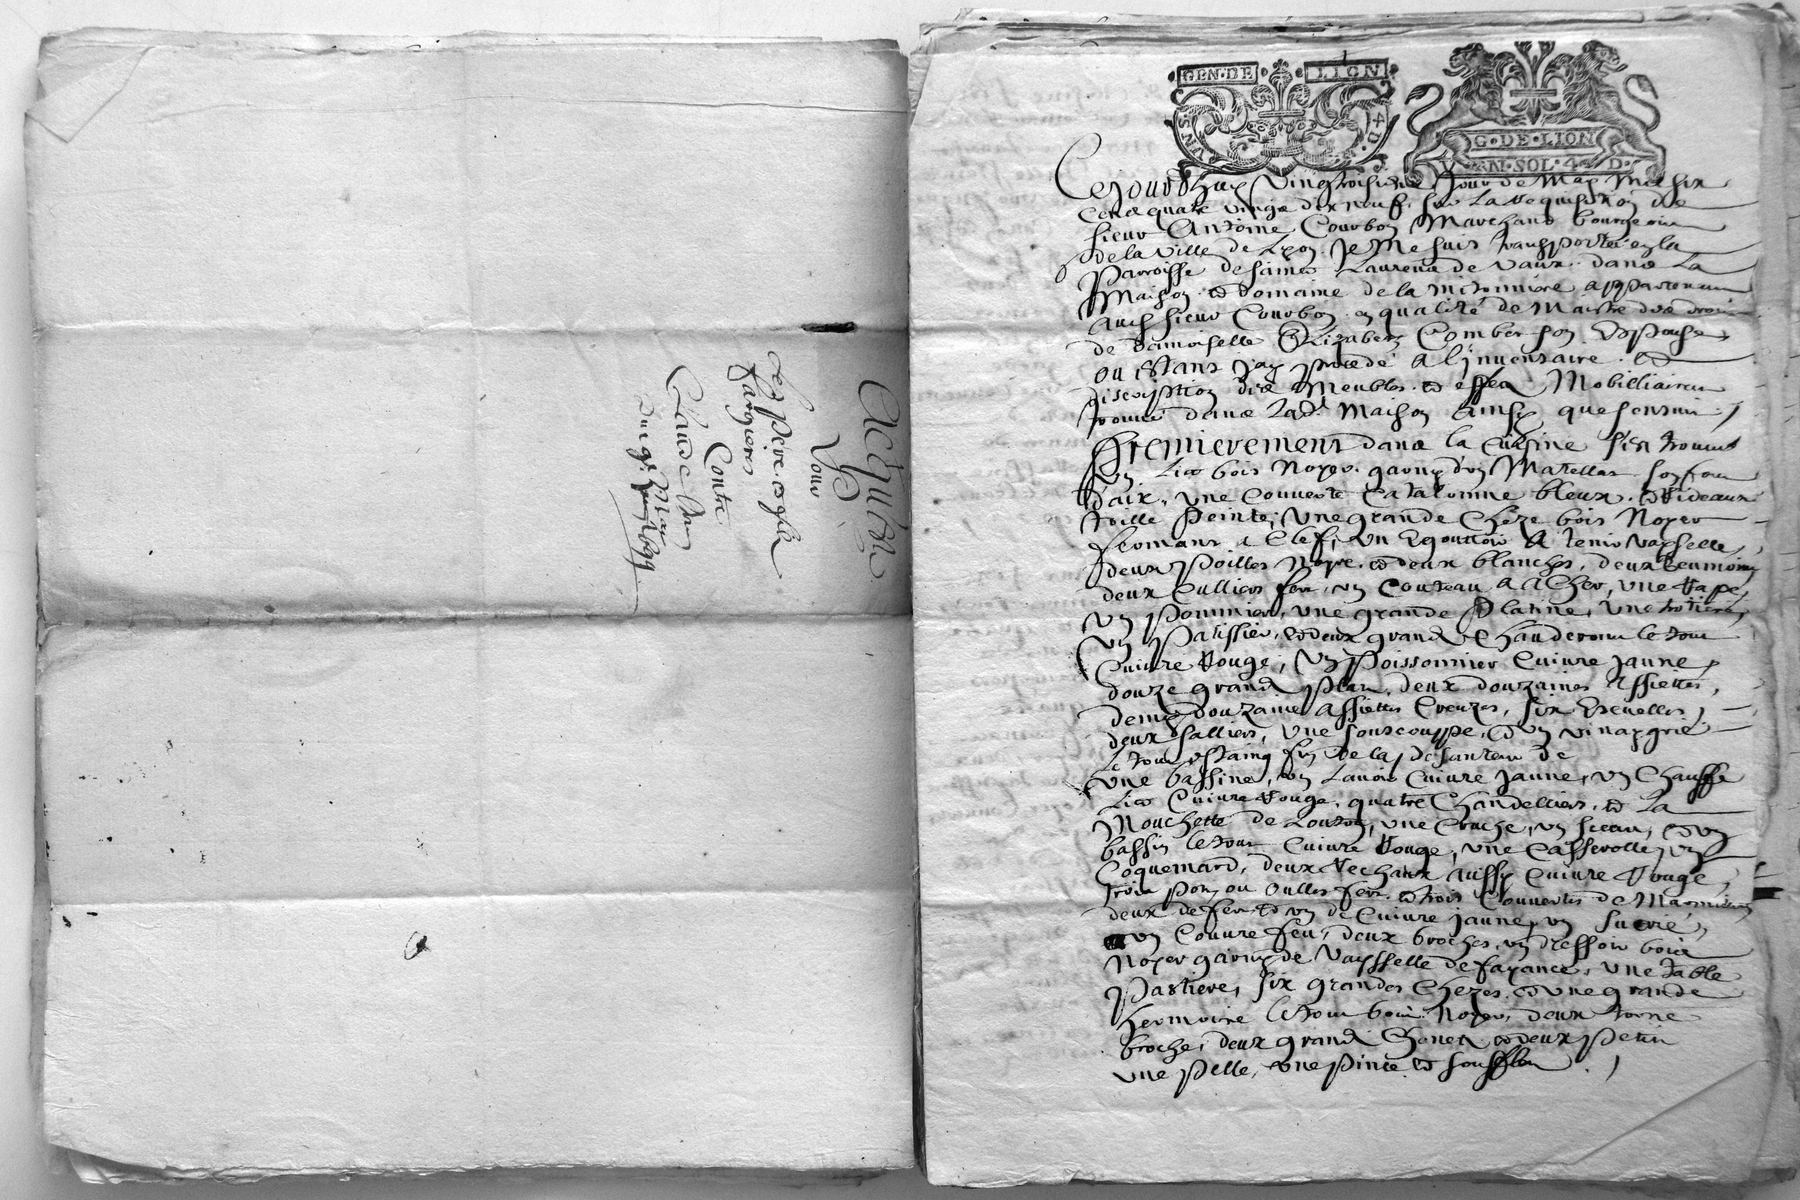 Acquict
Pour
Les pere et fils
Contre
Claude
GEN·DE LION
VN·S 4·D·
G·DE·LION
VN·SOL·4·D·
Cejourdhuy vingtroisiesme Jour de May mil six
cens quatre vingt dix neuf, sur La requisition de
sieur Antoine Courbon Marchand bourgeois
de la ville de Lyon, Je Me suis transporté en la
Parroisse de sainct Laurens de vaux, dans La
Maison et domaine de la mitonniere appartenant
audit sieur Courbon en qualité de Maistre des droits
de damoiselle Elizabetz Combes son Espouse
ou estant j'ay procedé a l'inventaire et
discription des Meubles et effets Mobilliaires
trouvés dans Lad. Maison ainsy que sensuit
Premierement dans la Cuisine s'est trouvé
Un Lict bois Noyer garny d'un Matellas
une Couverte Catalonne bleux et Rideaux
toille Peinte, Une grande Cheze bois Noyer
fermant a Clef, un Egouttoir A tenir vayselle,
deux Poilles Noire et deux blanches, deux
deux Culliers fer, un Couteau A Acher, une Rape,
un Pommier, une grande Platine, une
un Patissier, et deux grands Chauderons le tout
Cuivre Rouge, Un Poissonnier Cuivre jaune,
douze grands Plats, deux douzaines Assiettes,
demy douzaine Assiettes Creuzes, six Escuelles,
deux salliers, Une souscouppe, et un vinaygrié
Le tout Estaing fin de la pesanteur de
une bassine, un Lavoir Cuivre jaune, un Chauffe
Lict Cuivre Rouge, quatre Chandelliers et La
Mouchette de Loton, une Cruche, un sceau, et un
bassin le tout Cuivre Rouge, une Casserolle, un
Coquemard, deux Rechaux aussy Cuivre Rouge,
trois Pots ou Oulles fer et trois Couvertes de Marmittes
deux de fer et un de Cuivre jaune, un sucrié,
un Couvre feu, deux broches, un dressoir bois
Noyer garny de Vaysselle de fayance, une table
Pastiere, six grandes Chezes et une grande
hermoire le tout bois Noyer, deux torne
broche, deux grands Chenets et deux petits
une Pelle, une Pince et soufflet